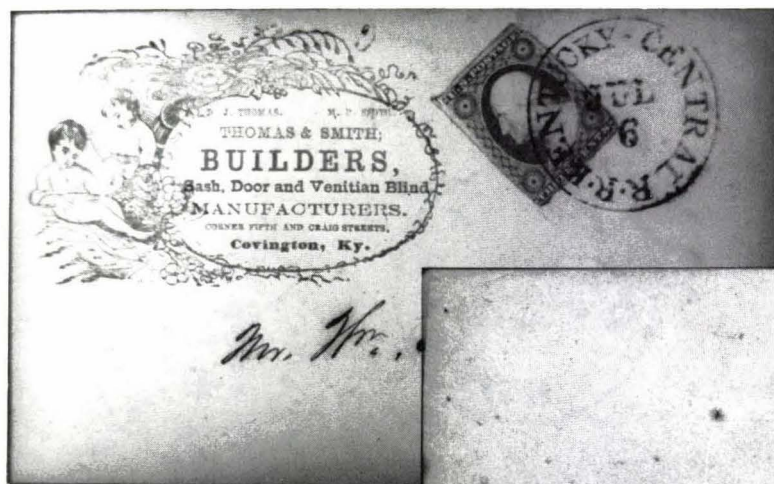 J. THOMAS. M. P. SMITH.
THOMAS & SMITH;
BUILDERS,
Sash, Door and Venitian Blind
MANUFACTURERS.
CORNER FIFTH AND CRAIG STREETS,
Covington, Ky.
KENTUCKY-CENTRAL R.R.
JUL
6
Mr. Wm.